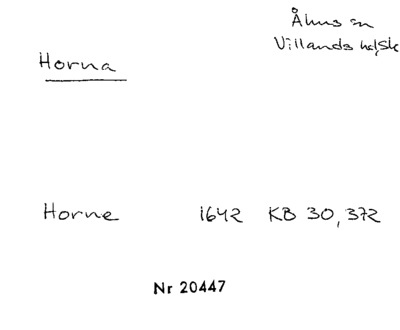 Åhus sn
Villands hd, Sk
Horna
Horne 1642 KB 30, 372
Nr 20447